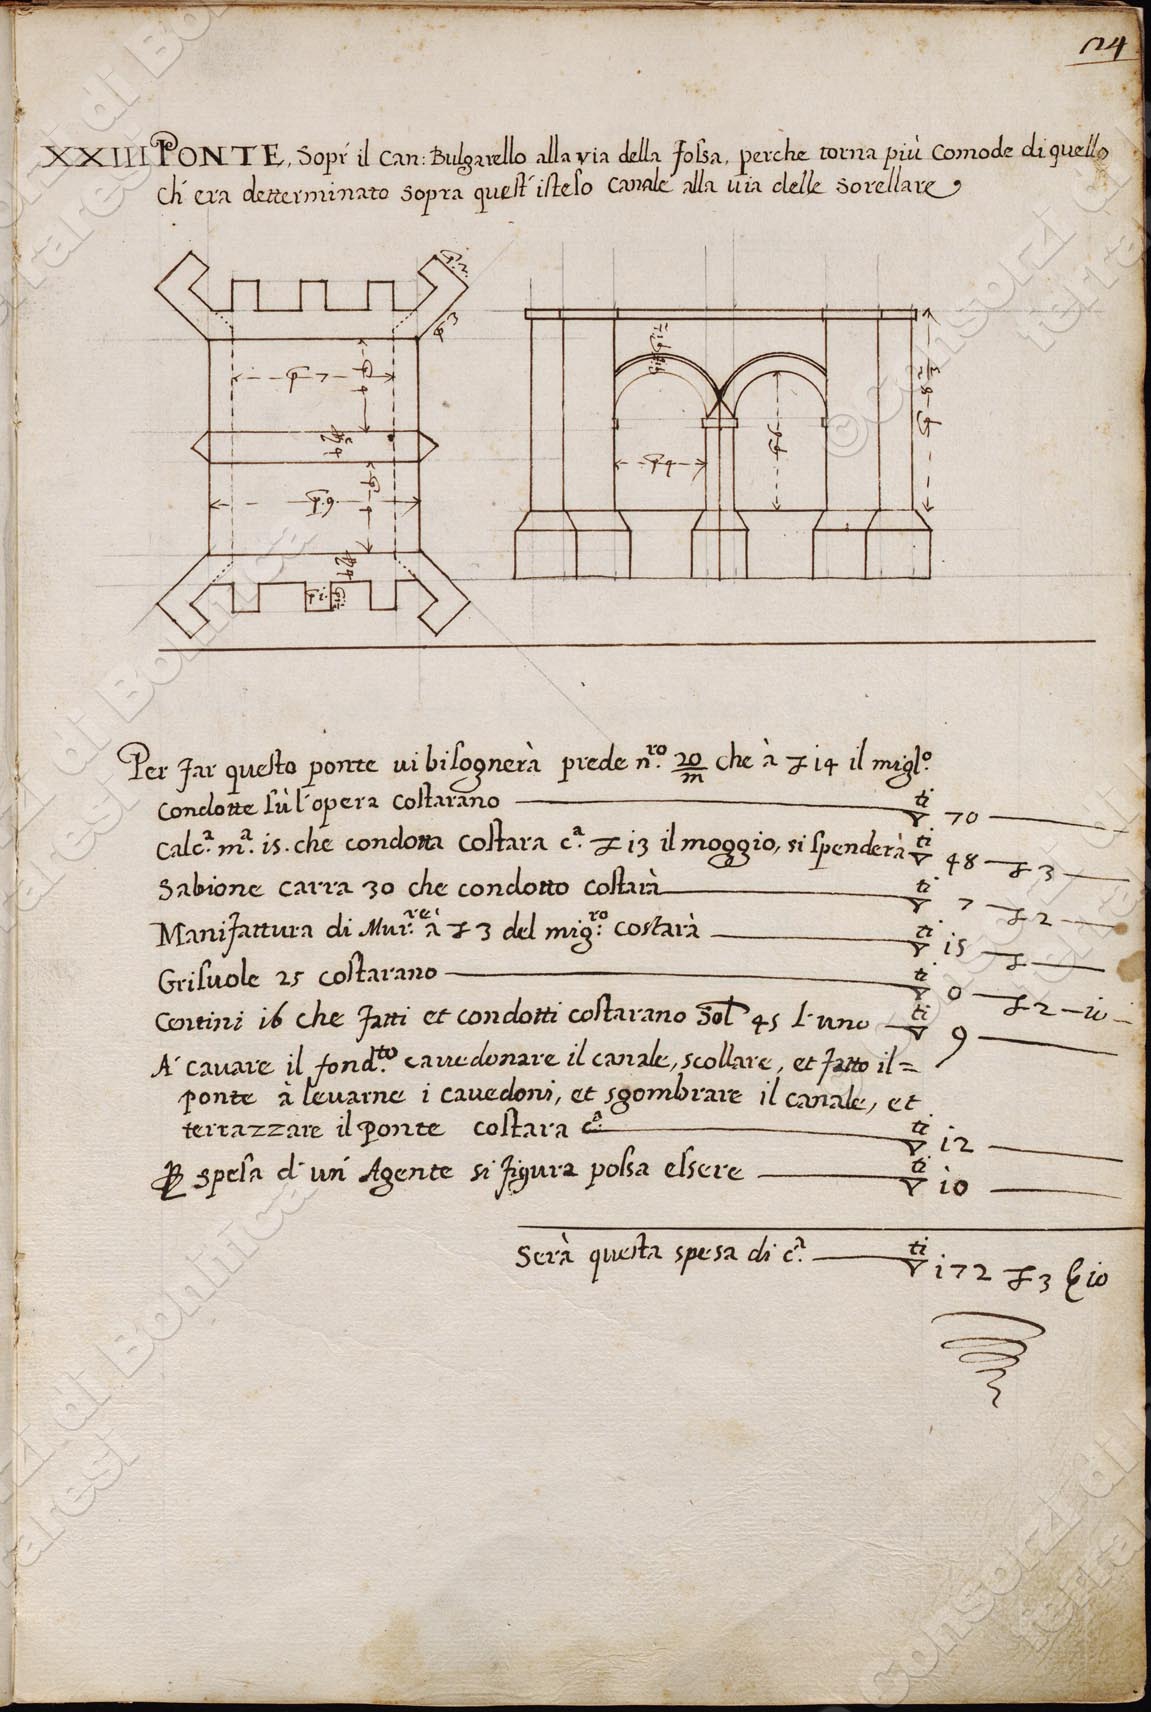 124
XXIII PONTE, Sopr' il Can: Bulgarello alla via della fossa, perche torna più comode di quello
ch' era determinato sopra quest' isteso canale alla via delle Sorellare
p. 2.
p 3
p 7
p 4
p 4
p. 9.
p 1.
p 4
p 8 2/3
Per far questo ponte vi bisognerà prede n.ro 20/m che à £ 14 il migl.o
condotte sù l'opera costarano ti 70
Calc.a m.a 15. che condotta costara c.a £ 13 il moggio, si spenderà ti 48 £ 3
Sabione carra 30 che condotto costarà ti 7 £ 2
Manifattura di Mur.re à £ 3 del mig.ro costarà ti 15 £
Grisuole 25 costarano ti 0 £ 2 10
Centini 16 che fatti et condotti costarano Sol 45 l'uno ti 9
A' cavare il fond.to cavedonare il canale, scollare, et fatto il=
ponte à levarne i cavedoni, et sgombrare il canale, et
terrazzare il ponte costara c.a ti 12
P spesa d' un' Agente si figura possa essere ti 10
Serà questa spesa di c.a ti 172 £ 3 ß 10
©consorzi di Bonifica
ferraresi